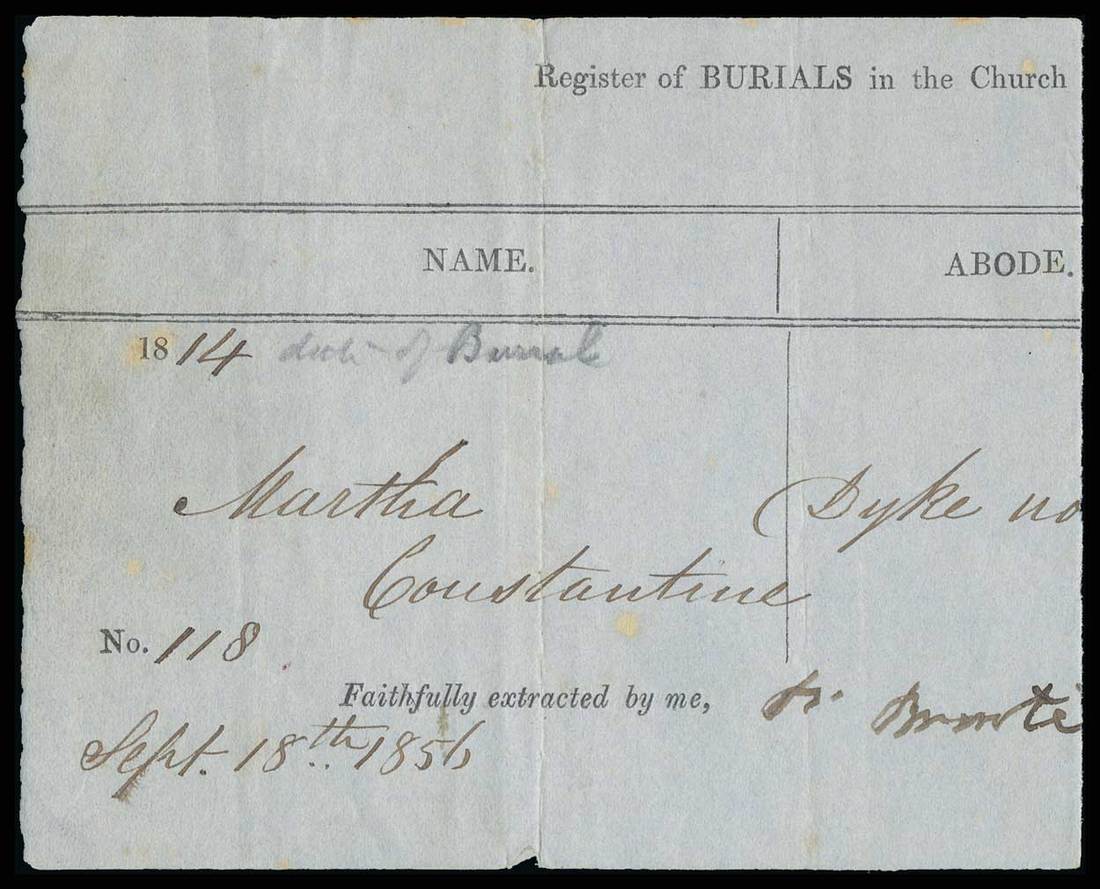 Register of BURIALS in the Church
NAME. ABODE.
1814 date of Burial
Martha Dyke no
Constantine
No. 118
Faithfully extracted by me, P. Brontë
Sept. 18th. 1856